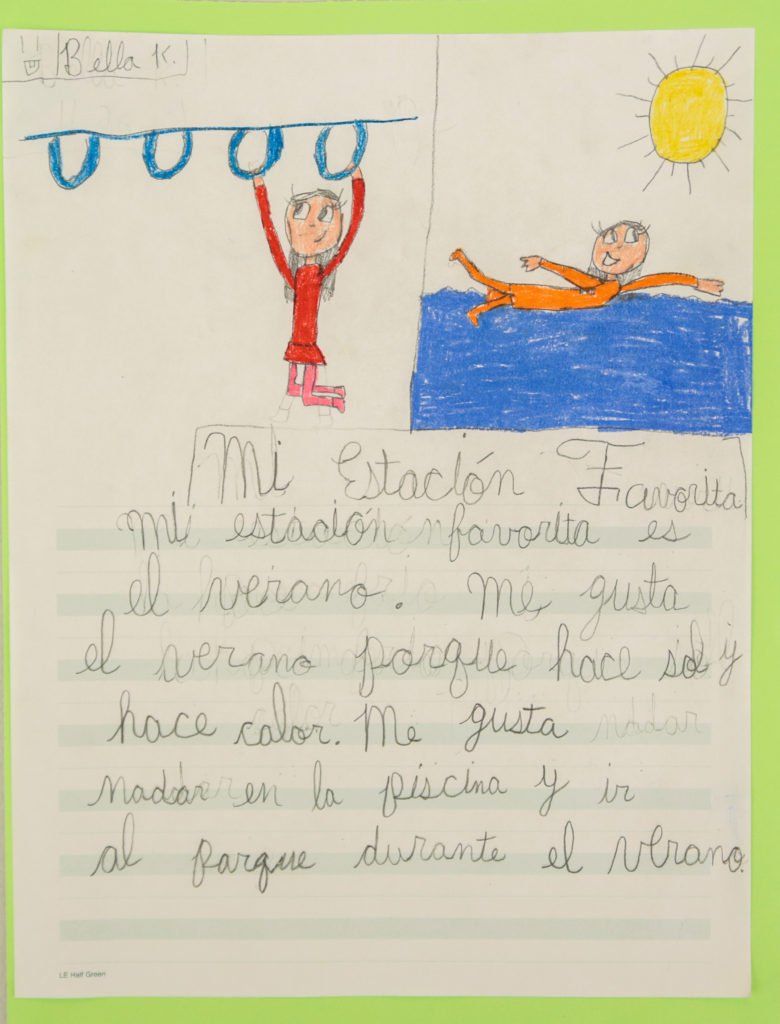 Bella K.
Mi Estación Favorita
Mi estación favorita es
el verano. Me gusta
el verano porque hace sol y
hace calor. Me gusta
nadar en la piscina y ir
al parque durante el verano.
LE Half Green